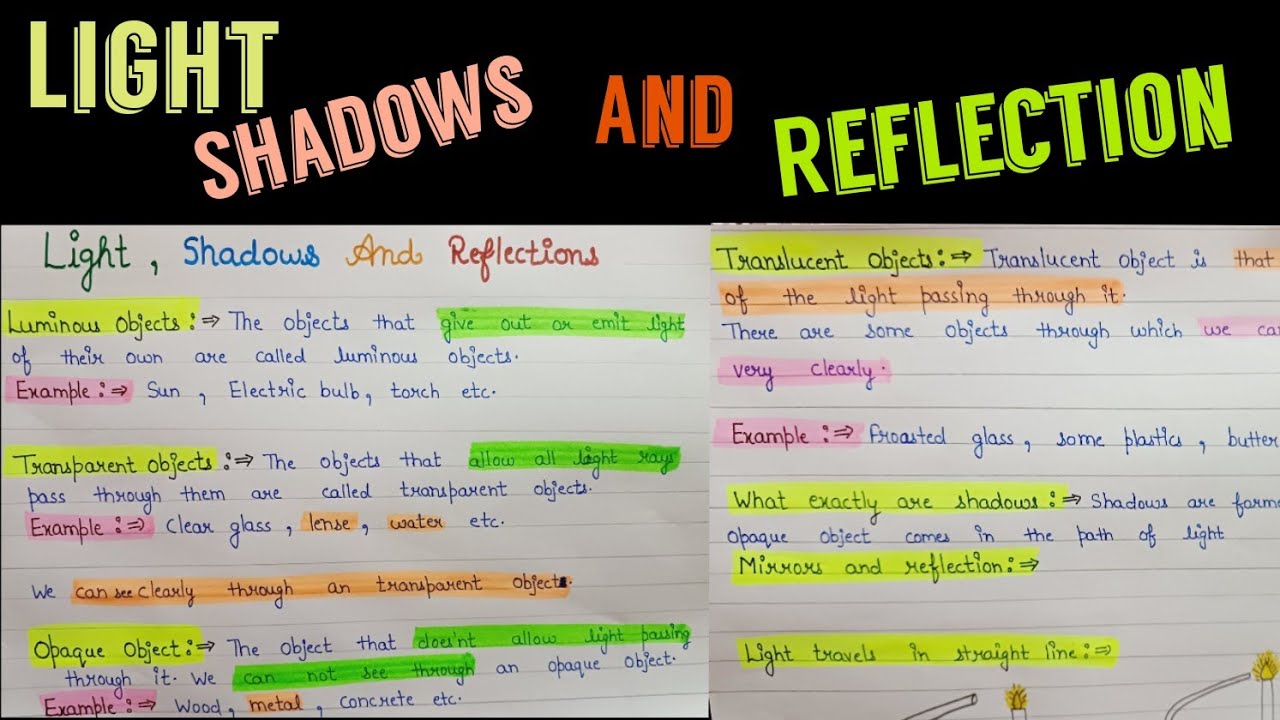 LIGHT
SHADOWS AND REFLECTION
Light, Shadows And Reflections
Luminous Objects :⇒ The objects that give out or emit light
of their own are called luminous objects.
Example :⇒ Sun, Electric bulb, torch etc.
Transparent objects :⇒ The objects that allow all light rays
pass through them are called transparent objects.
Example :⇒ Clear glass, lense, water etc.
We can see clearly through an transparent object.
Opaque Object :⇒ The object that does'nt allow light passing
through it. We can not see through an opaque object.
Example :⇒ Wood, metal, concrete etc.
Translucent Objects :⇒ Translucent object is that
of the light passing through it.
There are some objects through which we ca
very clearly.
Example :⇒ Froasted glass, some plastics, butter
What exactly are shadows :⇒ Shadows are forme
opaque object comes in the path of light
Mirrors and reflection :⇒
Light travels in straight line :⇒